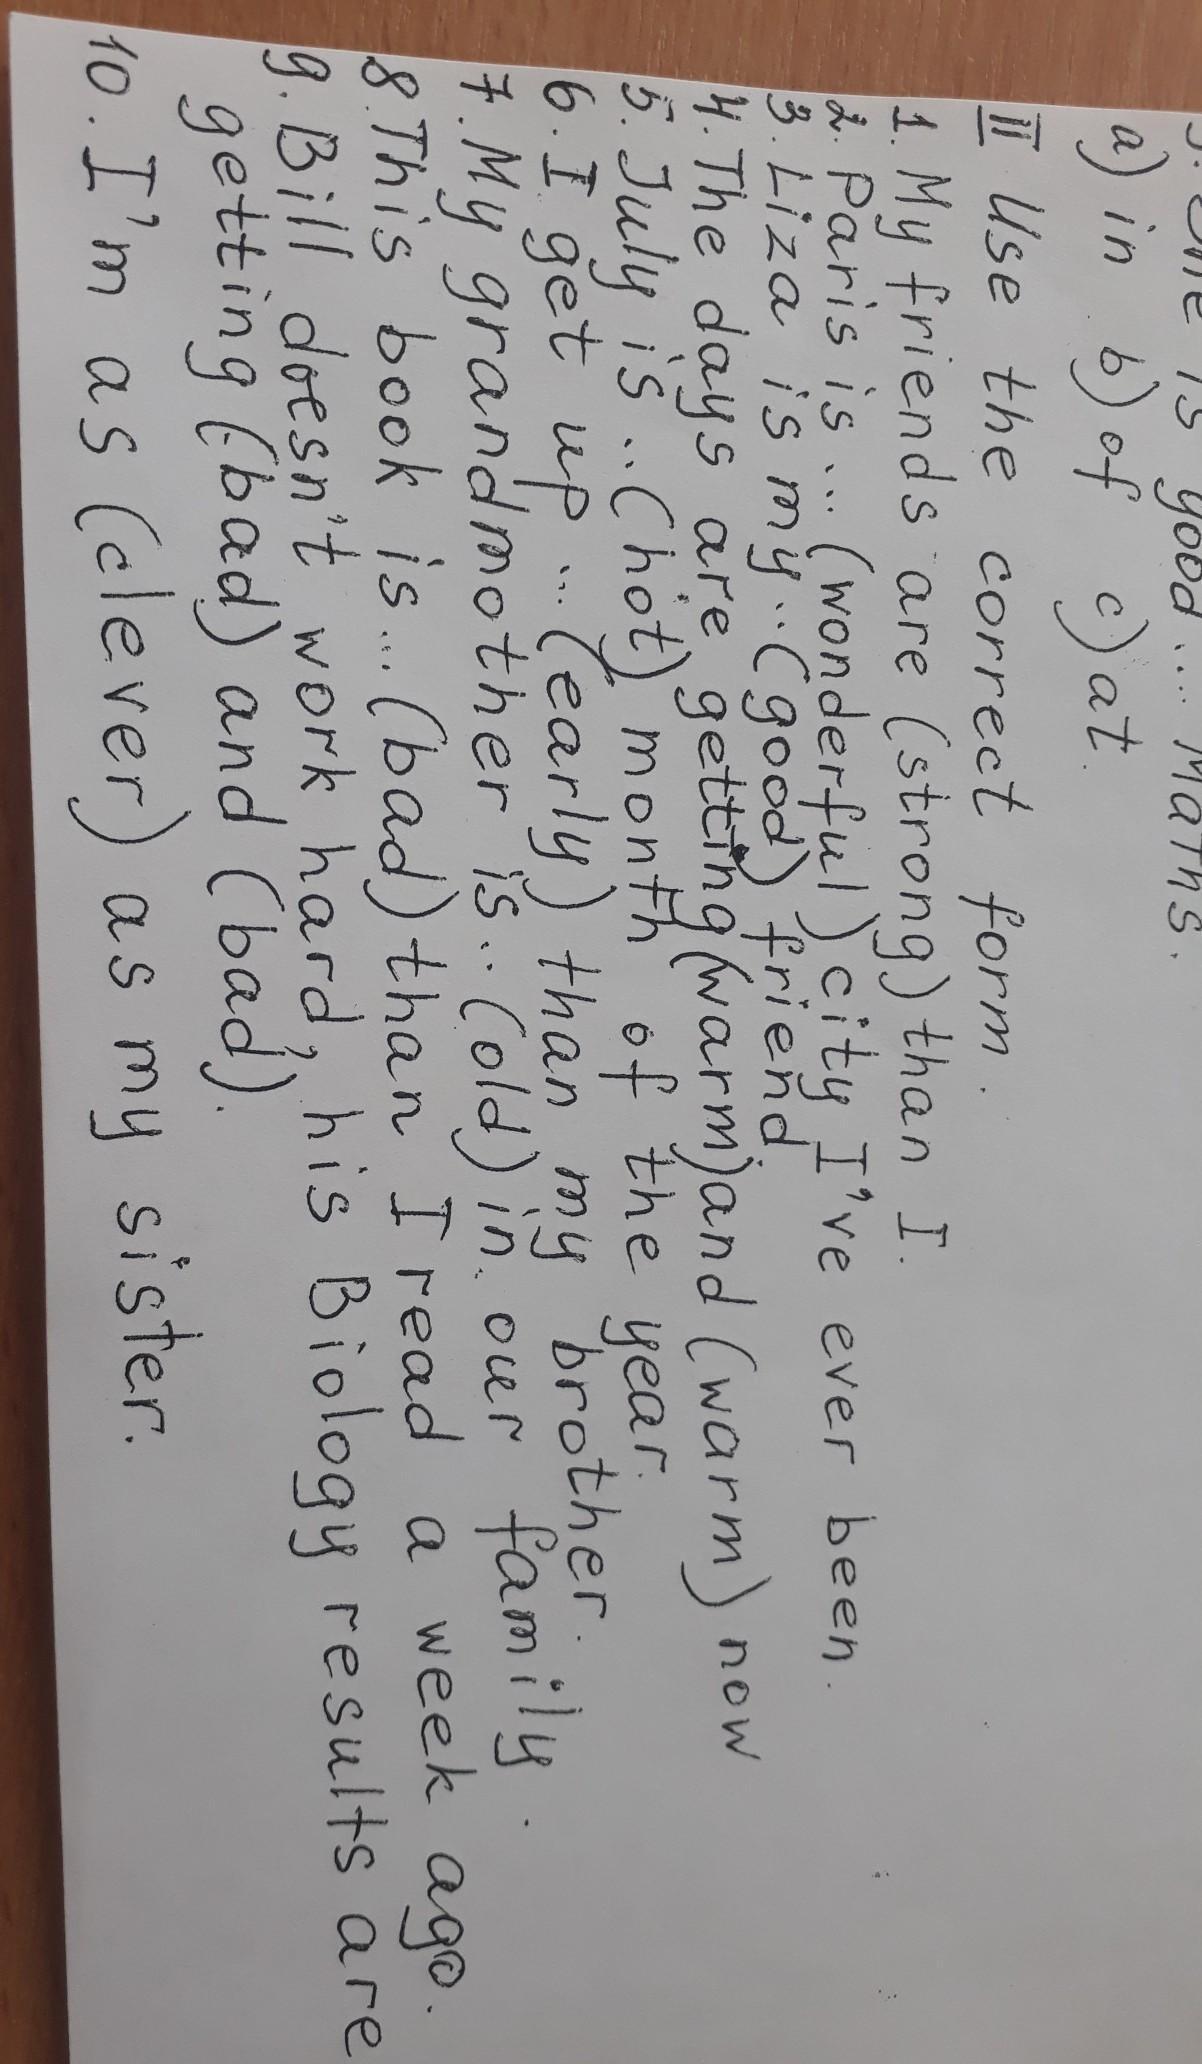 is good... Maths.
a) in b) of c) at.
II Use the correct form.
1. My friends are (strong) than I.
2. Paris is... (wonderful) city I've ever been.
3. Liza is my.. (good) friend
4. The days are getting (warm) and (warm) now
5. July is .. (hot) month of the year.
6. I get up ... (early) than my brother.
7. My grandmother is.. (old) in our family.
8. This book is... (bad) than I read a week ago.
9. Bill doesn't work hard, his Biology results are
getting (bad) and (bad).
10. I'm as (clever) as my sister.